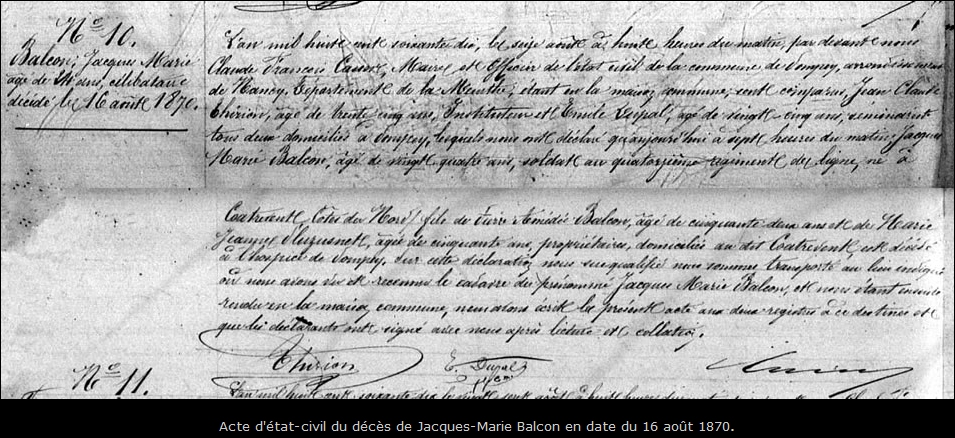 N° 10.
Balcon, Jacques Marie
âgé de 24 ans, célibataire
décédé le 16 août 1870.
L'an mil huit cent soixante dix, le seize août à huit heures du matin, par devant nous
Claude François, Maire et Officier de l'état civil de la commune de Pompey, arrondissement
de Nancy, Département de la Meurthe, étant en la maison commune, sont comparus, Jean Claude
Thirion, âgé de trente cinq ans, Instituteur et Emile Dupal, âgé de vingt cinq ans,
tous deux domiciliés à Pompey, lesquels nous ont déclaré qu'aujourd'hui à sept heures du matin, Jacques
Marie Balcon, âgé de vingt quatre ans, soldat au quatorzième régiment de ligne, né à
Coatrévent, Côtes du Nord, fils de Amédée Balcon, âgé de cinquante deux ans et de Marie
Jeanne, âgée de cinquante ans, propriétaires, domiciliés au dit Coatrévent, est décédé
à l'hospice de Pompey. Sur cette déclaration nous susqualifié nous sommes transporté au lieu indiqué
où nous avons vu et reconnu le cadavre du prénommé Jacques Marie Balcon, et nous étant ensuite
rendu en la maison commune, nous avons écrit le présent acte aux deux registres à ce destinés et
que les déclarants ont signé avec nous après lecture et collation.
Thirion E. Dupal
N° 11.
L'an mil huit cent soixante dix le vingt sept août à huit heures du matin
Acte d'état-civil du décès de Jacques-Marie Balcon en date du 16 août 1870.